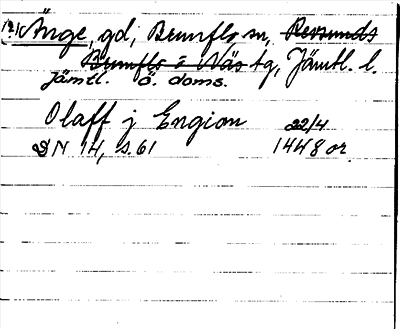 Änge, gd, Brunflo sn, Revsunds
Brunflo o Näs tg, Jämtl. l.
Jämtl. ö. doms.
Olaff j Engion 22/4
DN 14, s. 61 1448 or.